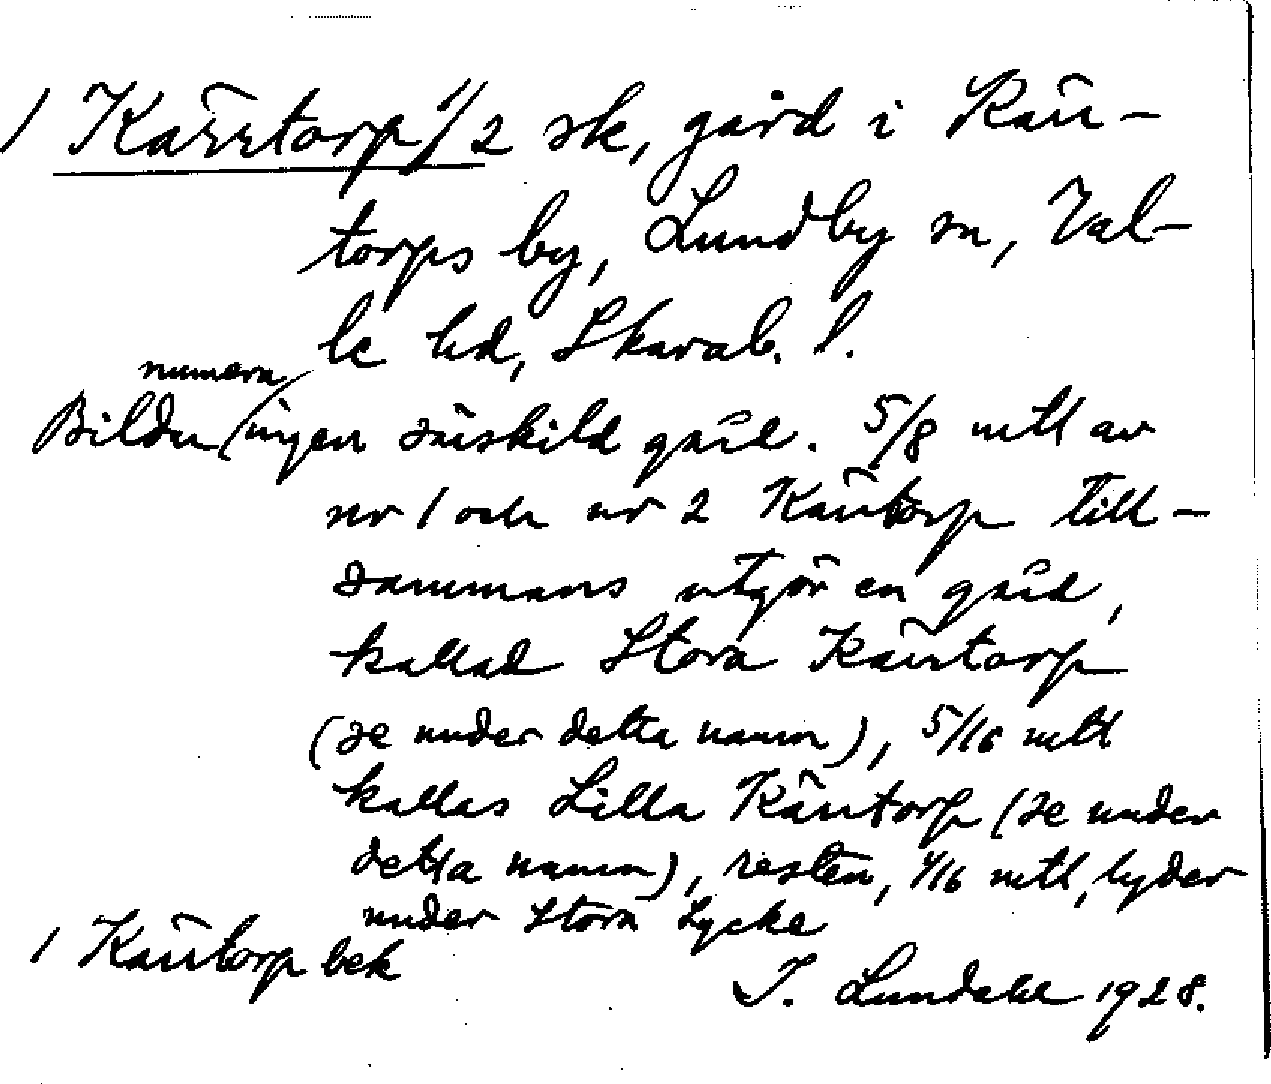 1 Kärrtorp 1/2 sk, gård i Kärr-
torps by, Lundby sn, Val-
le hd, Skarab. l.
numera
Bildar ingen särskild gård. 5/8 mtl av
nr 1 och nr 2 Kärrtorp till-
sammans utgör en gård,
kallad Stora Kärrtorp
(se under detta namn), 5/16 mtl
kallas Lilla Kärrtorp (se under
detta namn), resten, 1/16 mtl, lyder
under Stora Lycke
1 Kärrtorp bek
I. Lundahl 1928.